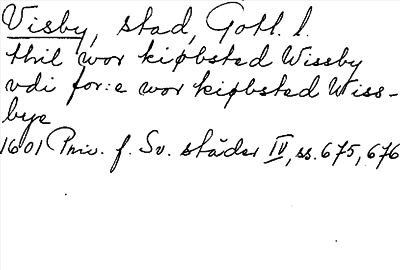 Visby, stad, Gotl. l.
thil wor kiøbsted Wissby
vdi for:e wor kiøbsted Wiss-
bye
1601 Priv. f. Sv. städer IV, ss. 675, 676